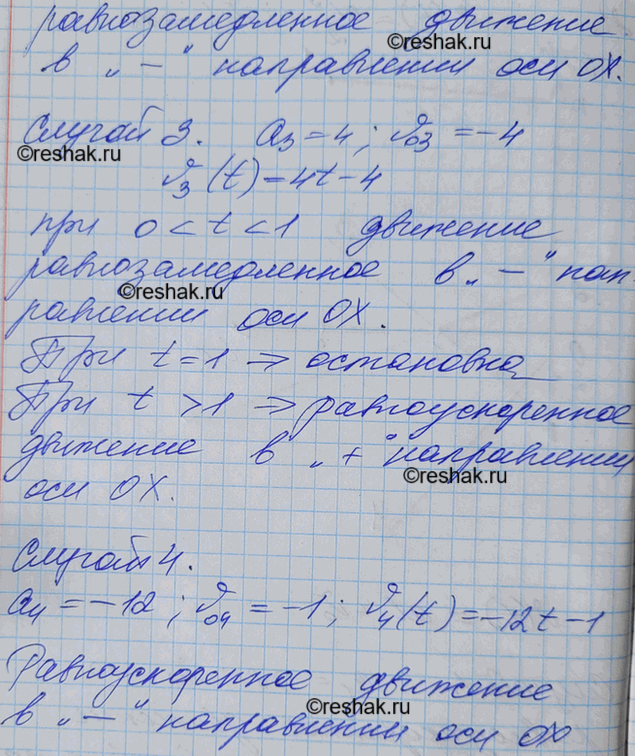 равнозамедленное движение
©reshak.ru
в „—“ направлении оси OX.
Случай 3. a₃ = 4; υ₀₃ = -4
©reshak.ru
υ₃(t) = 4t - 4
при 0 < t < 1 движение
равнозамедленное в „—“ нап
©reshak.ru
равлении оси OX.
При t = 1 → остановка
При t > 1 → равноускоренное
движение в „+“ направлении
©reshak.ru
оси OX.
Случай 4.
a₄ = -12; υ₀₄ = -1; υ₄(t) = -12t - 1
Равноускоренное движение
©reshak.ru
в „—“ направлении оси OX